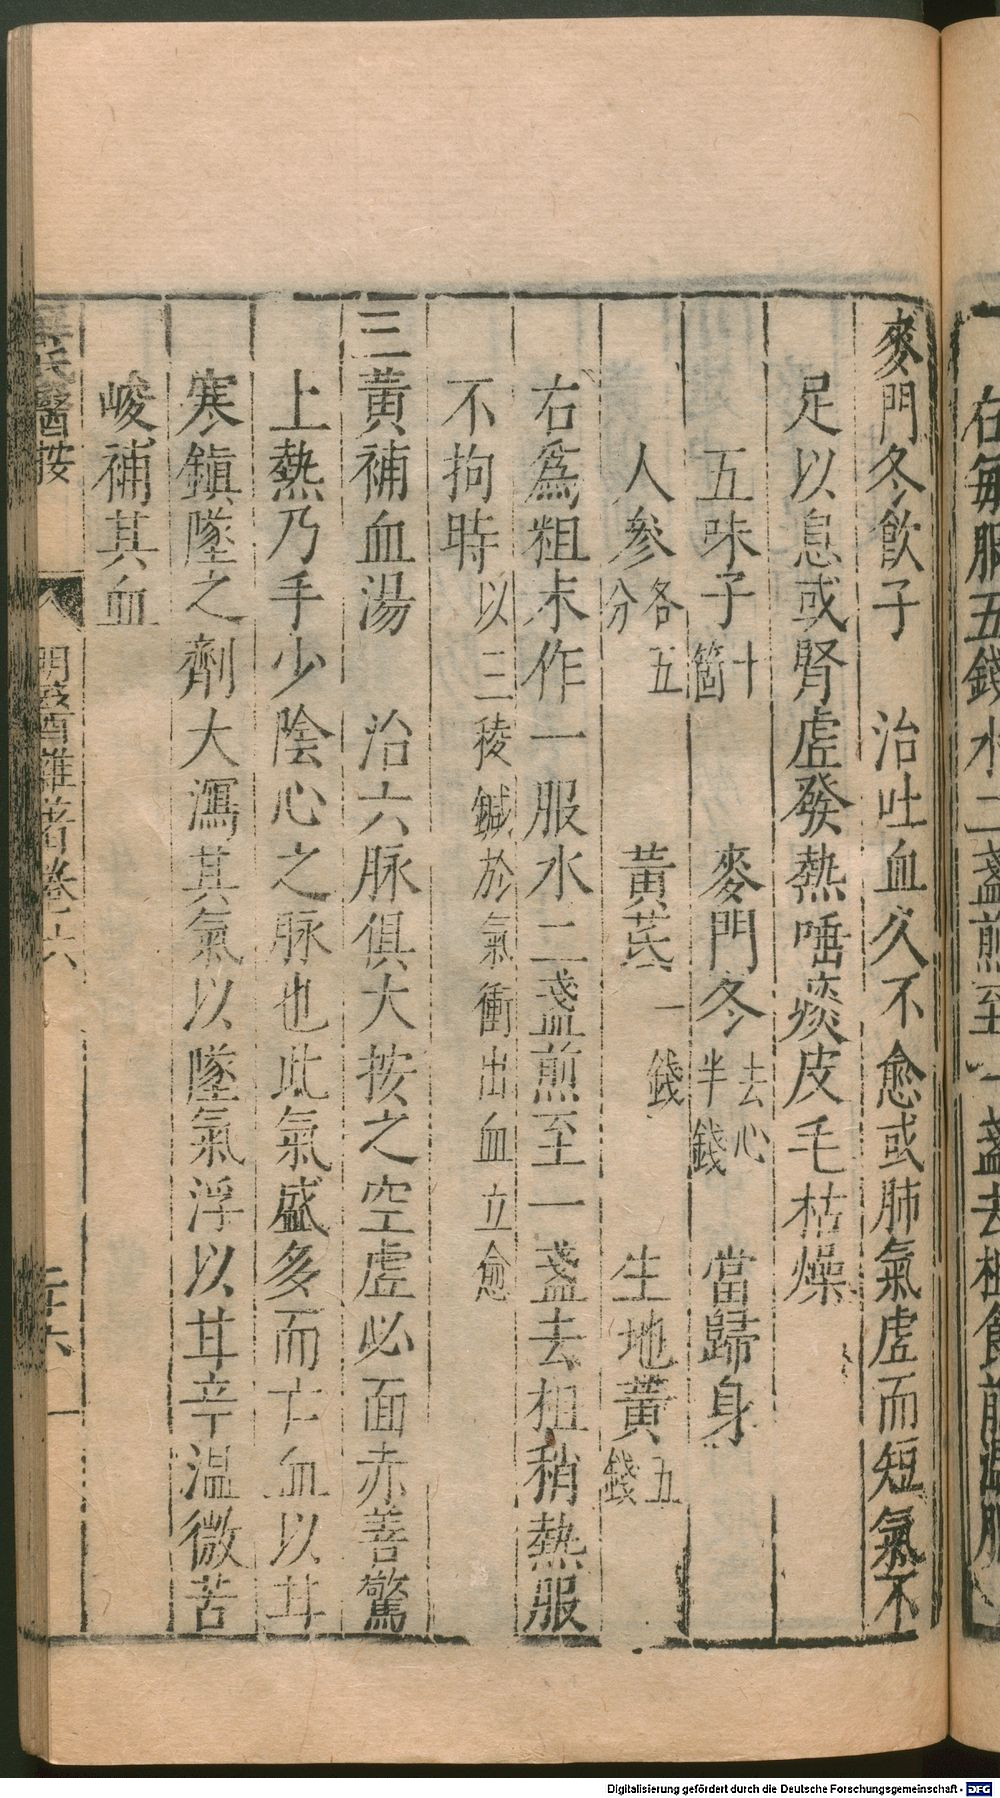 在每服五錢水二盞煎至一盞去柤食前溫服
麥門冬飮子　治吐血久不愈或肺氣虛而短氣不
足以息或腎虛發熱唾痰皮毛枯燥
五味子十箇　麥門冬去心半錢　當歸身
人參各五分　黃芪一錢　生地黃五錢
右爲粗末作一服水二盞煎至一盞去柤稍熱服
不拘時以三稜鍼於氣衝出血立愈
三黃補血湯　治六脉俱大按之空虛必面赤善驚
上熱乃手少陰心之脉也此氣盛多而亡血以甘
寒鎮墜之劑大瀉其氣以墜氣浮以甘辛溫微苦
峻補其血
氏醫按　明醫雜著卷之六
Digitalisierung gefördert durch die Deutsche Forschungsgemeinschaft - DFG